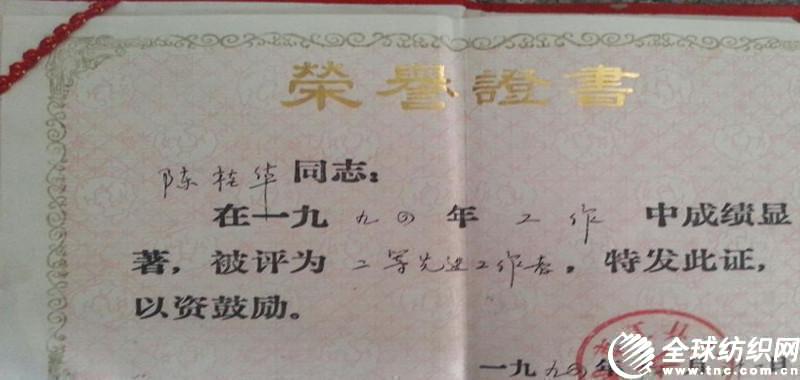 榮譽證書
陈桂华同志:
在一九九四年工作中成绩显
著，被评为二等先进工作者，特发此证，
以资鼓励。
一九九四年 月 日
全球纺织网
www.tnc.com.cn